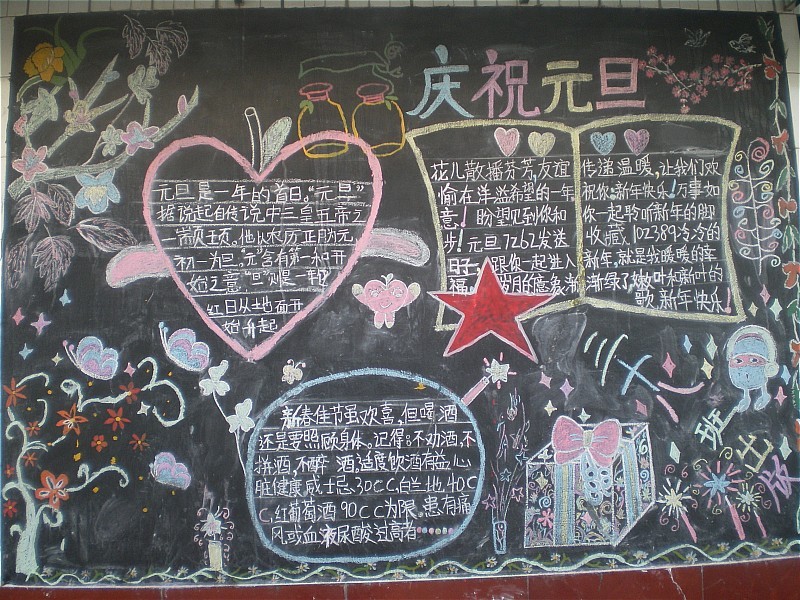 庆祝元旦
元旦是一年的首日。“元旦”
据说起自传说中三皇五帝之
一颛顼。他以农历正月为元,
初一为旦。元含有第一和开
始之意“旦”
红日从地
始升起
花儿散播芬芳,友谊
愉在洋溢希望的一年
意!盼望见到你和
步!元旦7262发送
日子,跟你一起进入
福。
传递温暖,让我们欢
祝你:新年快乐!万事如
你一起聆听新年的脚
收藏102389冷冷的
新年,就是我暖暖的幸
渐绿了嫩叶和新叶的
歌新年快乐!
新春佳节虽欢喜,但喝酒
还是要照顾身体。记得:不劝酒,不
拼酒,不醉酒,适度饮酒有益心
脏健康,威士忌30CC,白兰地40C
C,红葡萄酒90CC为限。患有痛
风或血液尿酸过高者……
三(1)班出版